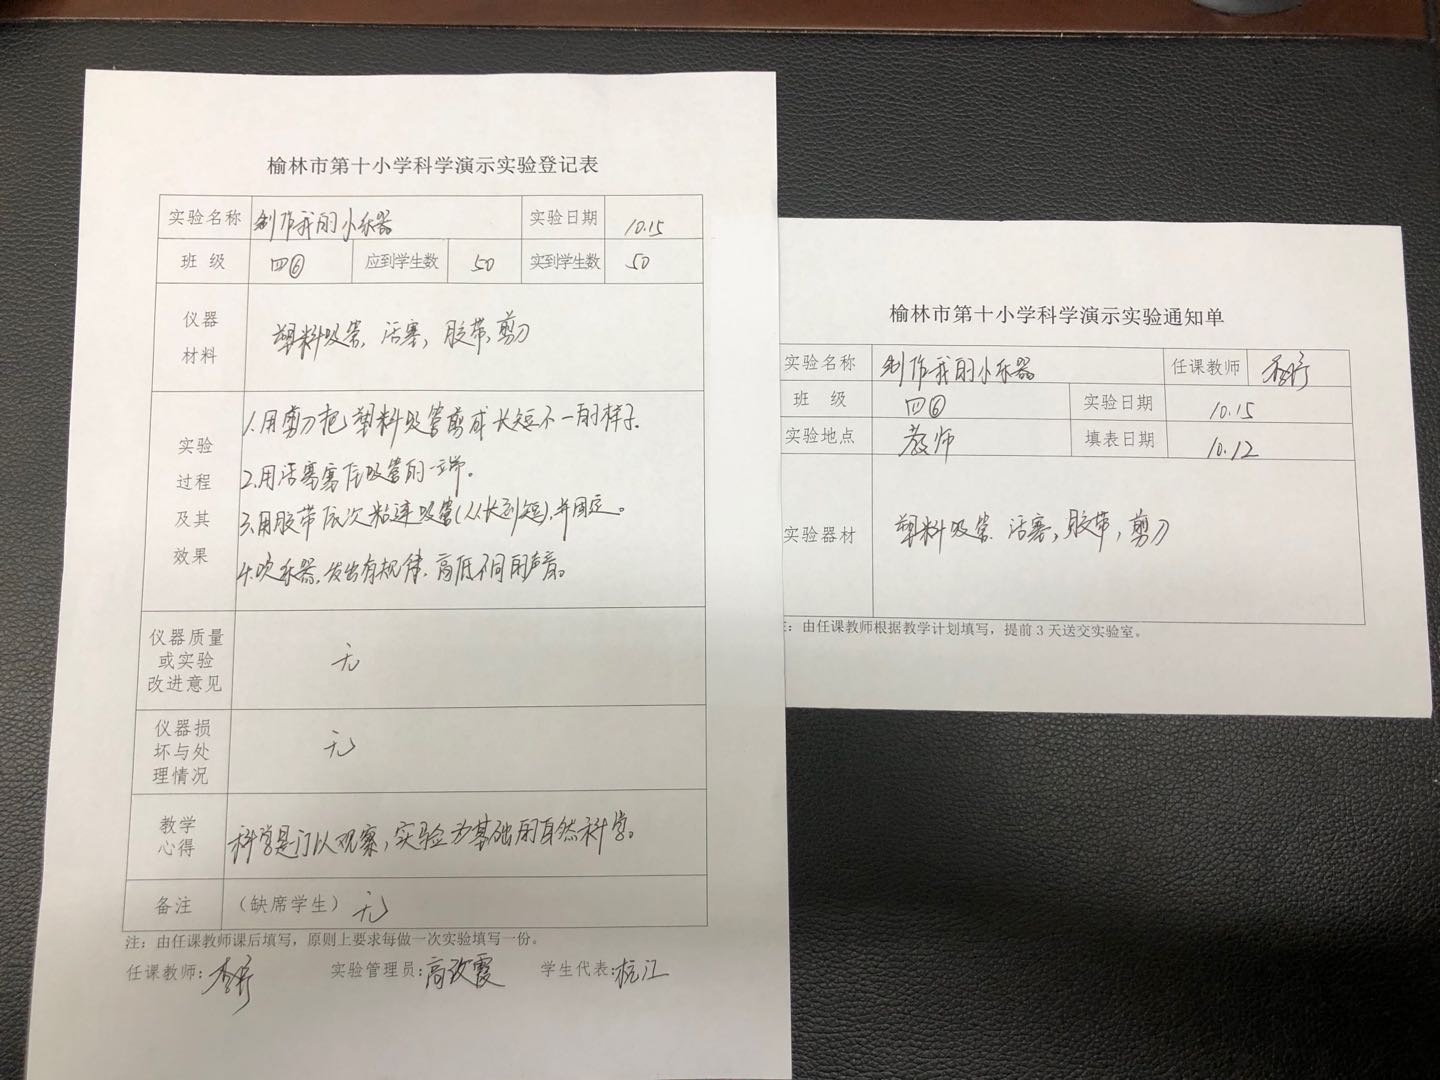 榆林市第十小学科学演示实验登记表
实验名称 制作我的小乐器 实验日期 10.15
班 级 四⑥ 应到学生数 50 实到学生数 50
仪器
材料
塑料吸管,活塞,胶带,剪刀
实验
过程
及其
效果
1.用剪刀把塑料吸管剪成长短不一的样子.
2.用活塞塞住吸管的一端。
3.用胶带依次粘连吸管(从长到短),并固定。
4.吹乐器,发出有规律、高低不同的声音。
仪器质量
或实验
改进意见
无
仪器损
坏与处
理情况
无
教学
心得
科学是门以观察,实验为基础的自然科学。
备注 (缺席学生) 无
注:由任课教师课后填写,原则上要求每做一次实验填写一份。
任课教师: 实验管理员:高改霞 学生代表:杭江
榆林市第十小学科学演示实验通知单
实验名称 制作我的小乐器 任课教师
班 级 四⑥ 实验日期 10.15
实验地点 教师 填表日期 10.12
实验器材 塑料吸管、活塞,胶带,剪刀
:由任课教师根据教学计划填写,提前 3 天送交实验室。